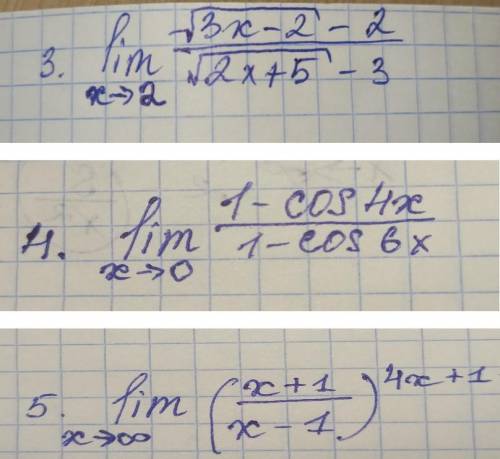 3. lim x→2 (√(3x-2) - 2)/(√(2x+5) - 3)
4. lim x→0 (1 - cos 4x)/(1 - cos 6x)
5. lim x→∞ ((x+1)/(x-1))^(4x+1)